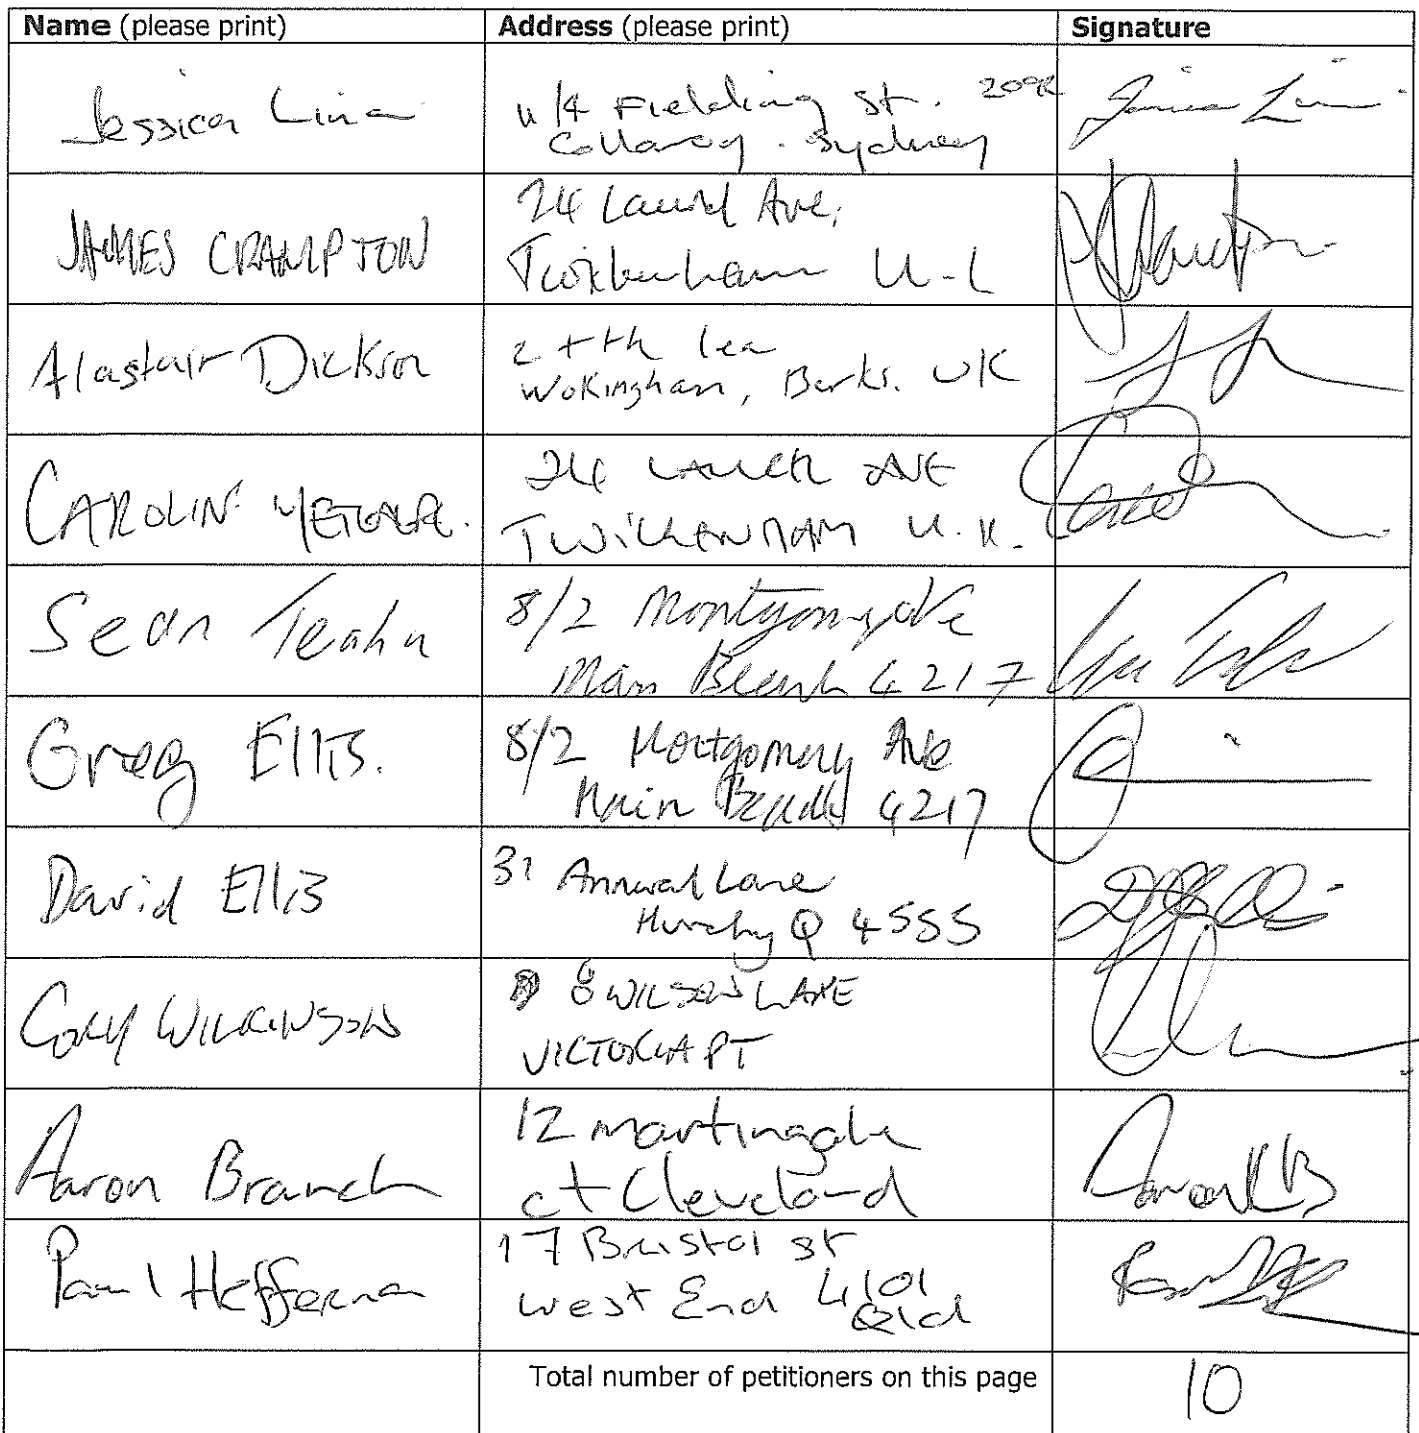 Name (please print) Address (please print) Signature
Jessica Lina
u/4 Fielding St. 2092
Collaroy. Sydney
JAMES CRAMPTON
24 Laurel Ave,
Twickenham U-K
Alastair Dickson
lea
Wokingham, Berks. UK
CAROLIN
24 AVE
TWICKENHAM U.K.
Sean
8/2 Montgomy Ave
Main Beach 4217
Greg Ellis.
8/2 Montgomery Ave
Main Beach 4217
David Ellis
31 Lane
Q 4555
WILKINSON
8 WILSON LANE
VICTORIA PT
Aaron Branch
12 martingale
ct Cleveland
Paul Heffernan
17 Bristol st
West End 4101
Qld
Total number of petitioners on this page 10